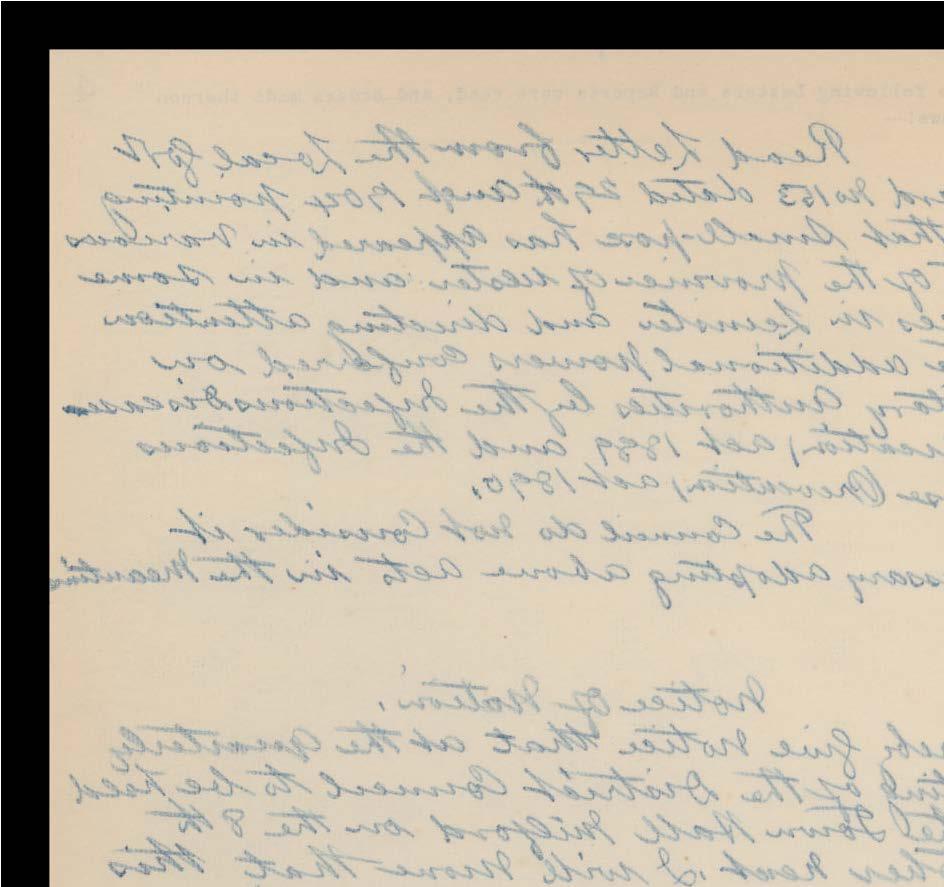 following Letters and Reports were read, and Orders made thereon
Read Letter from the Local Govt
No 153 dated 29th Augt 1904 pointing
that Small-pox has appeared in various
of the Province of Ulster and in some
in Leinster and directing attention
additional powers conferred on
Authorities by the Infectious Disease
act 1889 and the Infectious
Prevention) act 1890.
The Council do not Consider it
ssary adopting above acts in the meantime
Notice of Motion.
eby give notice that at the Quarterly
ting of the District Council to be held
Town Hall Milford on the 8th
next I will move that this